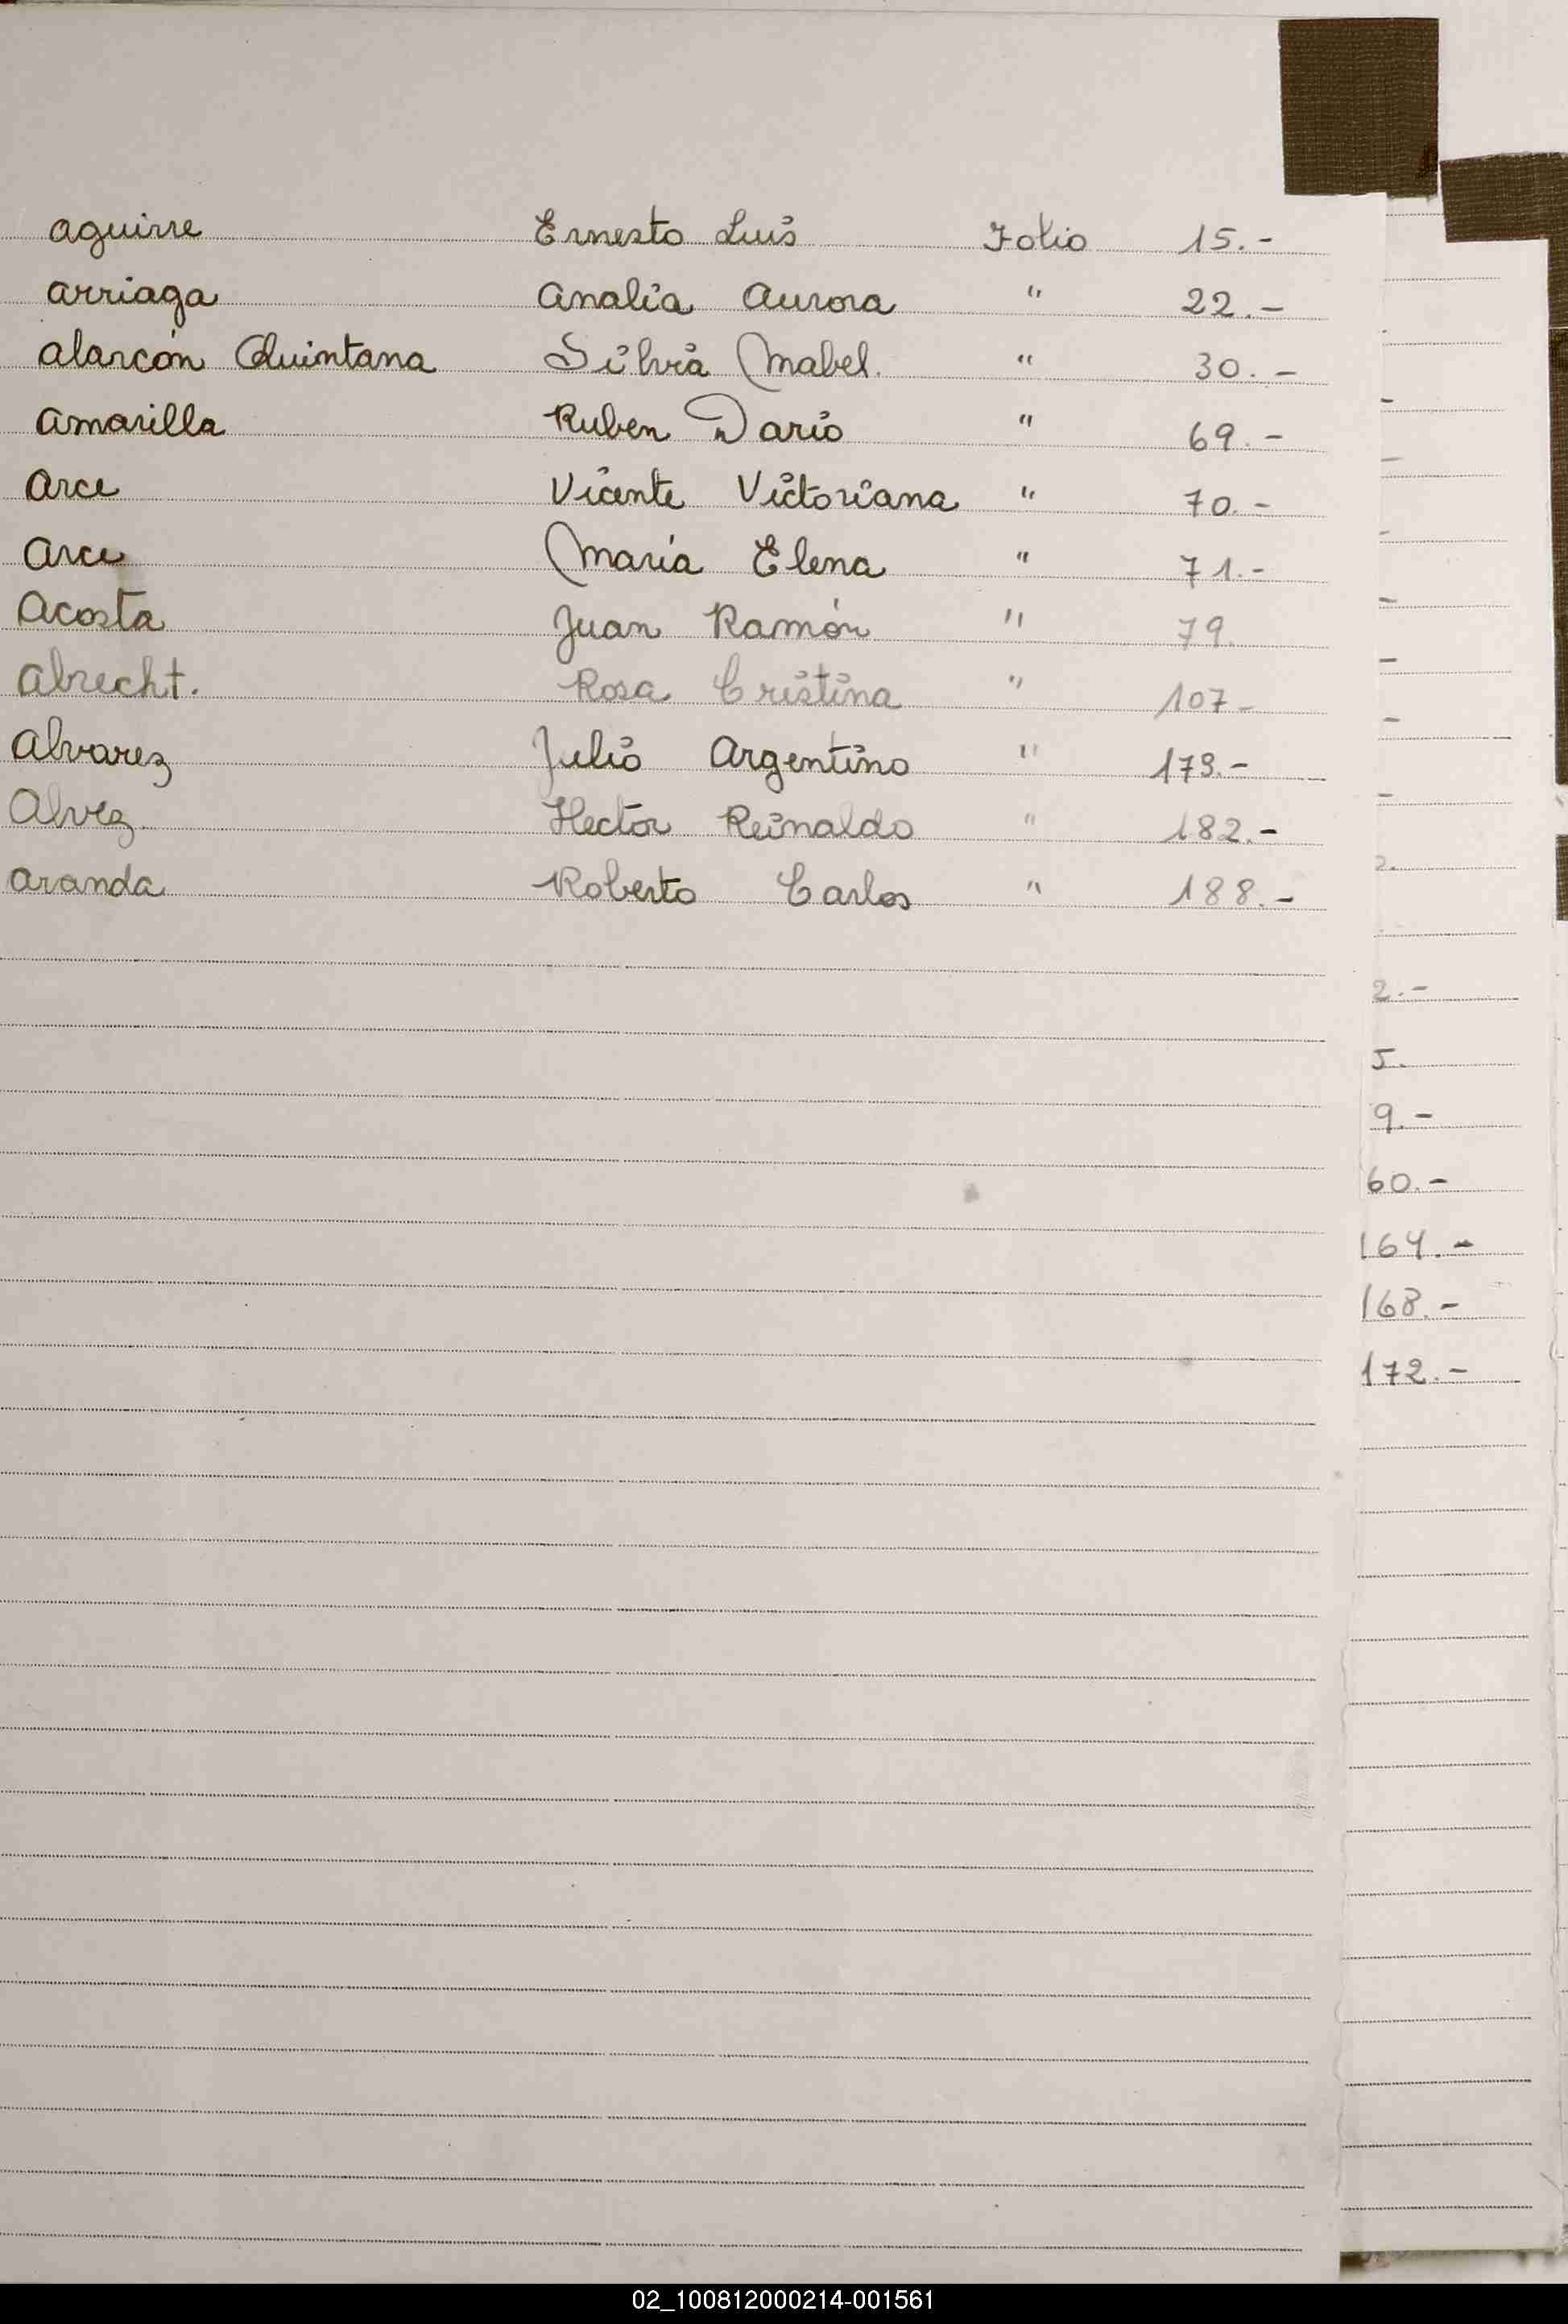 Aguirre Ernesto Luis Folio 15.-
Arriaga Analia Aurora " 22.-
Alarcón Quintana Silvia Mabel. " 30.-
Amarilla Ruben Dario " 69.-
Arce Vicente Victoriana " 70.-
Arce María Elena " 71.-
Acosta Juan Ramón " 79.
Abrecht. Rosa Cristina " 107-
Alvarez Julio Argentino " 173.-
Alvez Hector Reinaldo " 182.-
Aranda Roberto Carlos " 188.-
2.
2.-
5.
9.-
60.-
164.-
168.-
172.-
02_100812000214-001561